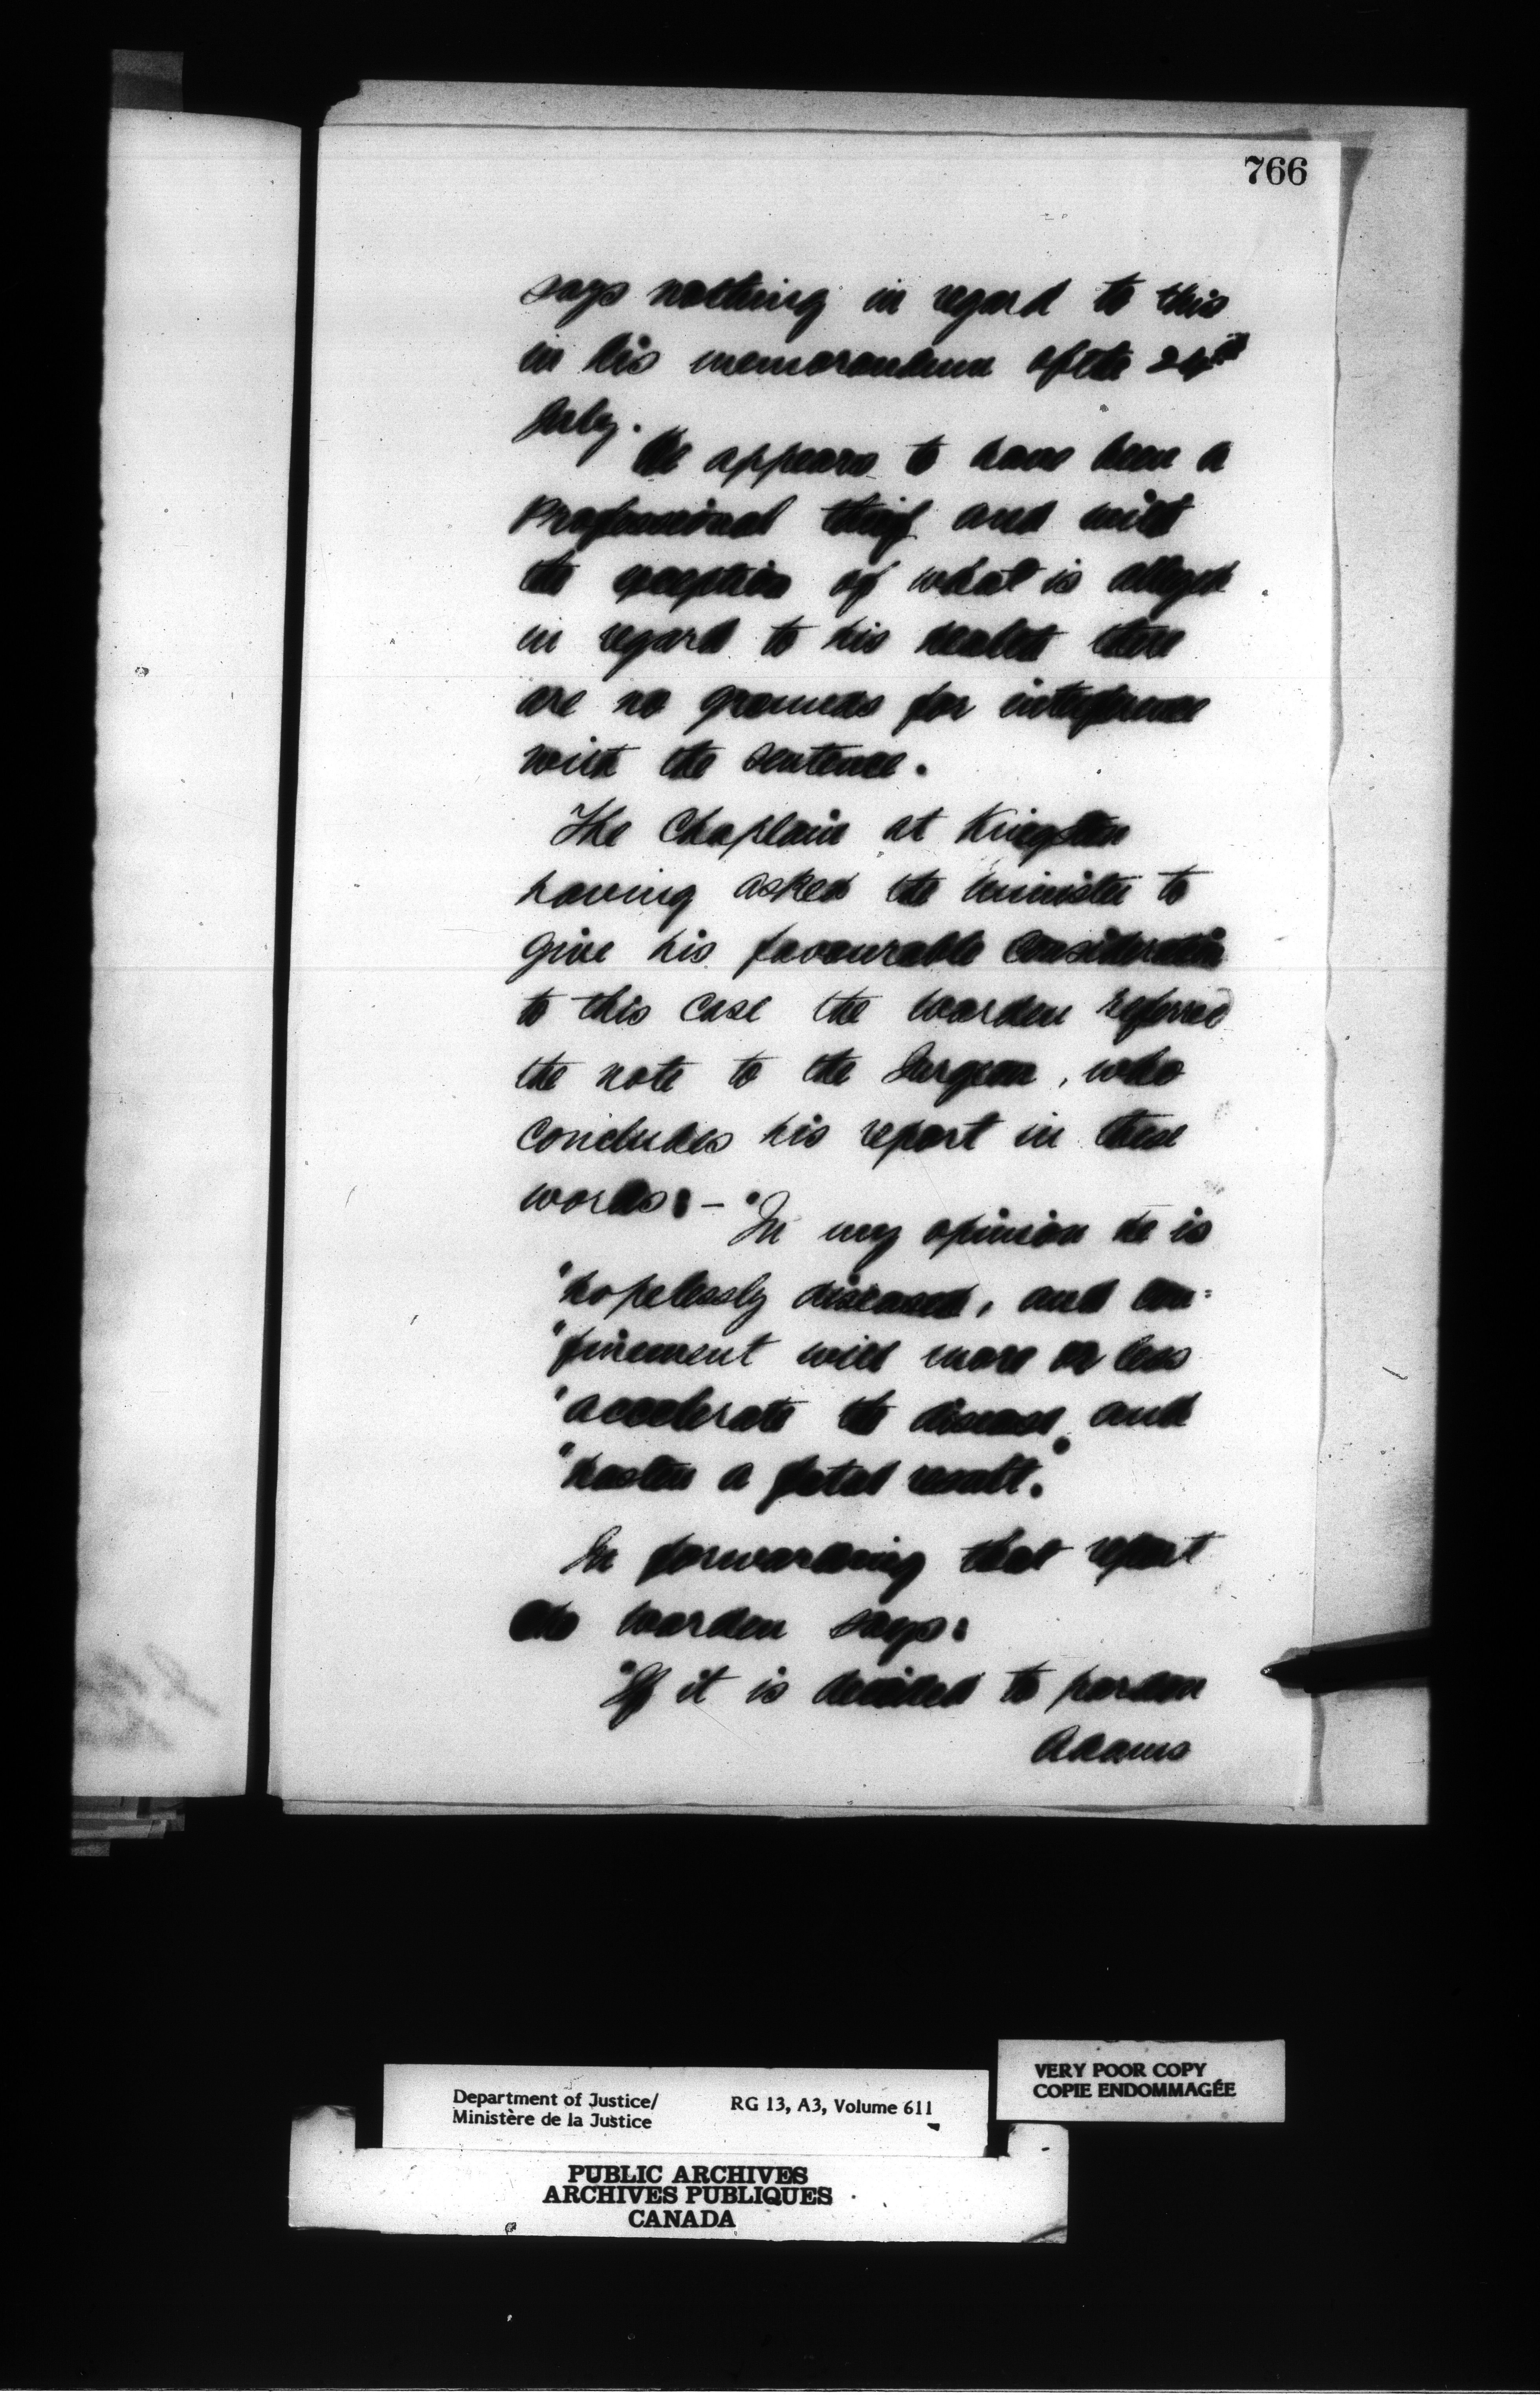 766
says nothing in regard to this
in his memorandum of the 24th
July.
He appears to have been a
Professional thief and with
the exception of what is alleged
in regard to his health there
are no grounds for interference
with the sentence.
The Chaplain at Kingston
having asked the Minister to
give his favourable consideration
to this case the Warden referred
the note to the Surgeon, who
concludes his report in these
words:- "In my opinion he is
"hopelessly diseased, and con=
"finement will more or less
"accelerate the disease, and
"hasten a fatal result."
In forwarding that report
the Warden says:
"If it is decided to pardon
Adams
Department of Justice/
Ministère de la Justice
RG 13, A3, Volume 611
VERY POOR COPY
COPIE ENDOMMAGÉE
PUBLIC ARCHIVES
ARCHIVES PUBLIQUES
CANADA